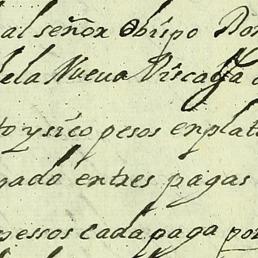 al señor obispo Don
dela Nueva Viscaya
to y sico pesos enplat
gado entres pagas
pessos cada paga por